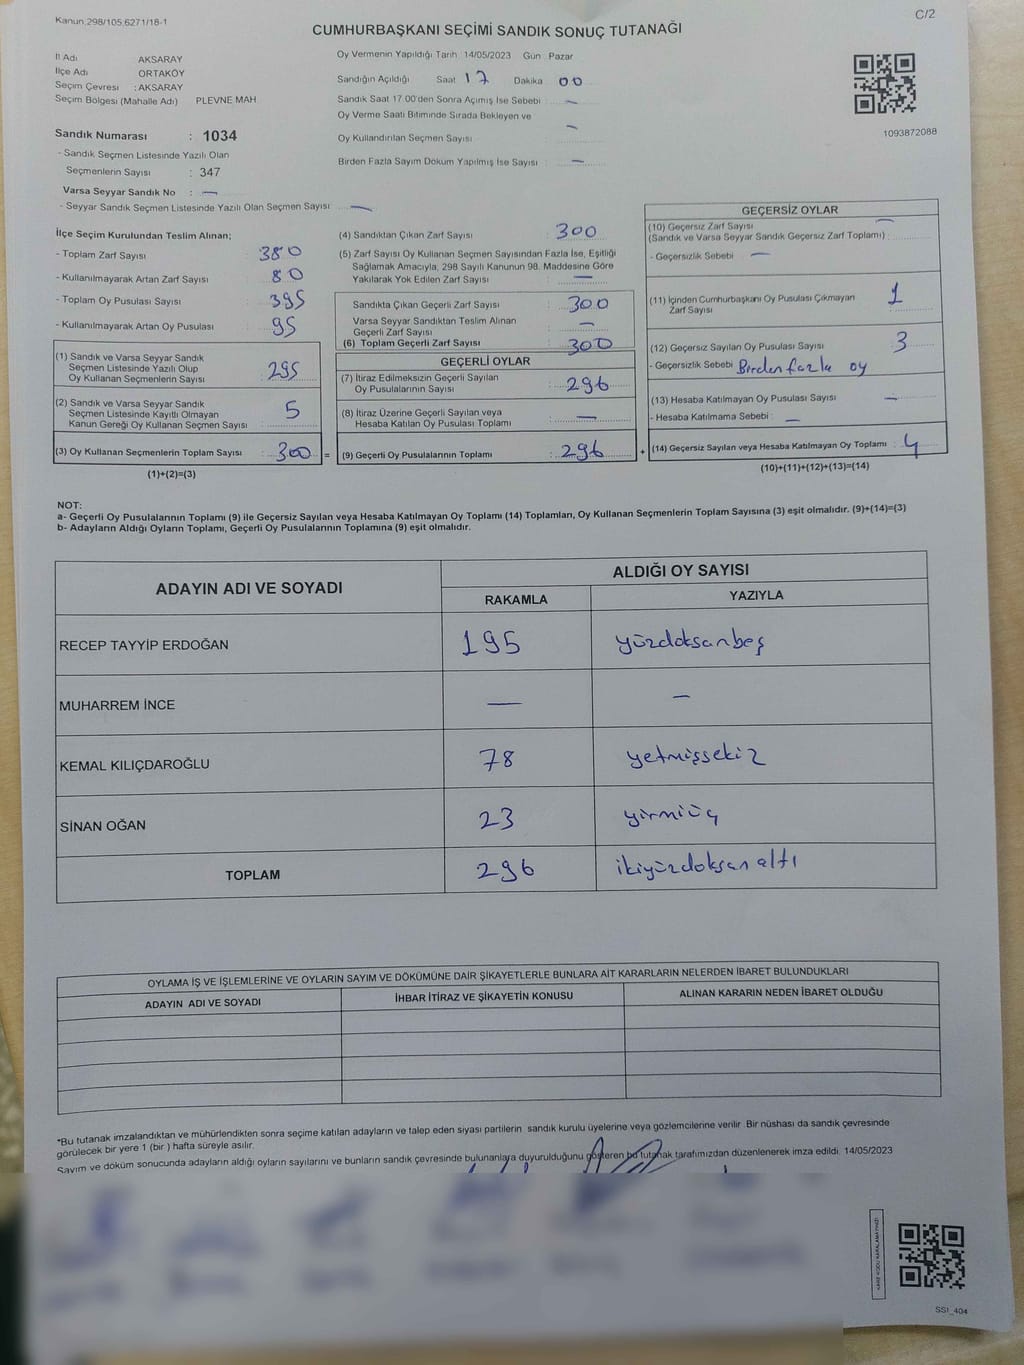 Kanun;298/105,6271/18-1
C/2
CUMHURBAŞKANI SEÇİMİ SANDIK SONUÇ TUTANAĞI
İl Adı AKSARAY
İlçe Adı ORTAKÖY
Seçim Çevresi : AKSARAY
Seçim Bölgesi (Mahalle Adı) PLEVNE MAH
Sandık Numarası : 1034
- Sandık Seçmen Listesinde Yazılı Olan
Seçmenlerin Sayısı : 347
Varsa Seyyar Sandık No : —
- Seyyar Sandık Seçmen Listesinde Yazılı Olan Seçmen Sayısı : —
Oy Vermenin Yapıldığı Tarih 14/05/2023 Gün Pazar
Sandığın Açıldığı Saat 17 Dakika 00
Sandık Saat 17.00'den Sonra Açımış İse Sebebi : —
Oy Verme Saati Bitiminde Sırada Bekleyen ve
Oy Kullandırılan Seçmen Sayısı : —
Birden Fazla Sayım Döküm Yapılmış İse Sayısı : —
1093872088
İlçe Seçim Kurulundan Teslim Alınan;
- Toplam Zarf Sayısı : 380
- Kullanılmayarak Artan Zarf Sayısı : 80
- Toplam Oy Pusulası Sayısı : 395
- Kullanılmayarak Artan Oy Pusulası : 95
(1) Sandık ve Varsa Seyyar Sandık
Seçmen Listesinde Yazılı Olup
Oy Kullanan Seçmenlerin Sayısı : 295
(2) Sandık ve Varsa Seyyar Sandık
Seçmen Listesinde Kayıtlı Olmayan
Kanun Gereği Oy Kullanan Seçmen Sayısı : 5
(3) Oy Kullanan Seçmenlerin Toplam Sayısı : 300 =
(1)+(2)=(3)
(4) Sandıktan Çıkan Zarf Sayısı : 300
(5) Zarf Sayısı Oy Kullanan Seçmen Sayısından Fazla İse, Eşitliği
Sağlamak Amacıyla, 298 Sayılı Kanunun 98. Maddesine Göre
Yakılarak Yok Edilen Zarf Sayısı : —
Sandıkta Çıkan Geçerli Zarf Sayısı : 300
Varsa Seyyar Sandıktan Teslim Alınan
Geçerli Zarf Sayısı : —
(6) Toplam Geçerli Zarf Sayısı : 300
GEÇERLİ OYLAR
(7) İtiraz Edilmeksizin Geçerli Sayılan
Oy Pusulalarının Sayısı : 296
(8) İtiraz Üzerine Geçerli Sayılan veya
Hesaba Katılan Oy Pusulası Toplamı : —
(9) Geçerli Oy Pusulalarının Toplamı : 296 +
GEÇERSİZ OYLAR
(10) Geçersiz Zarf Sayısı —
(Sandık ve Varsa Seyyar Sandık Geçersiz Zarf Toplamı) :
- Geçersizlik Sebebi —
(11) İçinden Cumhurbaşkanı Oy Pusulası Çıkmayan
Zarf Sayısı 1
(12) Geçersiz Sayılan Oy Pusulası Sayısı 3
- Geçersizlik Sebebi Birden fazla oy
(13) Hesaba Katılmayan Oy Pusulası Sayısı —
- Hesaba Katılmama Sebebi : —
(14) Geçersiz Sayılan veya Hesaba Katılmayan Oy Toplamı : 4
(10)+(11)+(12)+(13)=(14)
NOT:
a- Geçerli Oy Pusulalarının Toplamı (9) ile Geçersiz Sayılan veya Hesaba Katılmayan Oy Toplamı (14) Toplamları, Oy Kullanan Seçmenlerin Toplam Sayısına (3) eşit olmalıdır. (9)+(14)=(3)
b- Adayların Aldığı Oyların Toplamı, Geçerli Oy Pusulalarının Toplamına (9) eşit olmalıdır.
ADAYIN ADI VE SOYADI ALDIĞI OY SAYISI
RAKAMLA YAZIYLA
RECEP TAYYİP ERDOĞAN 195 yüzdoksanbeş
MUHARREM İNCE — —
KEMAL KILIÇDAROĞLU 78 yetmişsekiz
SİNAN OĞAN 23 yirmiüç
TOPLAM 296 ikiyüzdoksanaltı
OYLAMA İŞ VE İŞLEMLERİNE VE OYLARIN SAYIM VE DÖKÜMÜNE DAİR ŞİKAYETLERLE BUNLARA AİT KARARLARIN NELERDEN İBARET BULUNDUKLARI
ADAYIN ADI VE SOYADI İHBAR İTİRAZ VE ŞİKAYETİN KONUSU ALINAN KARARIN NEDEN İBARET OLDUĞU
*Bu tutanak imzalandıktan ve mühürlendikten sonra seçime katılan adayların ve talep eden siyasi partilerin sandık kurulu üyelerine veya gözlemcilerine verilir. Bir nüshası da sandık çevresinde
görülecek bir yere 1 (bir ) hafta süreyle asılır.
Sayım ve döküm sonucunda adayların aldığı oyların sayılarını ve bunların sandık çevresinde bulunanlara duyurulduğunu gösteren bu tutanak tarafımızdan düzenlenerek imza edildi. 14/05/2023
KARE KODU KARALAMAYINIZ!
SSI_404